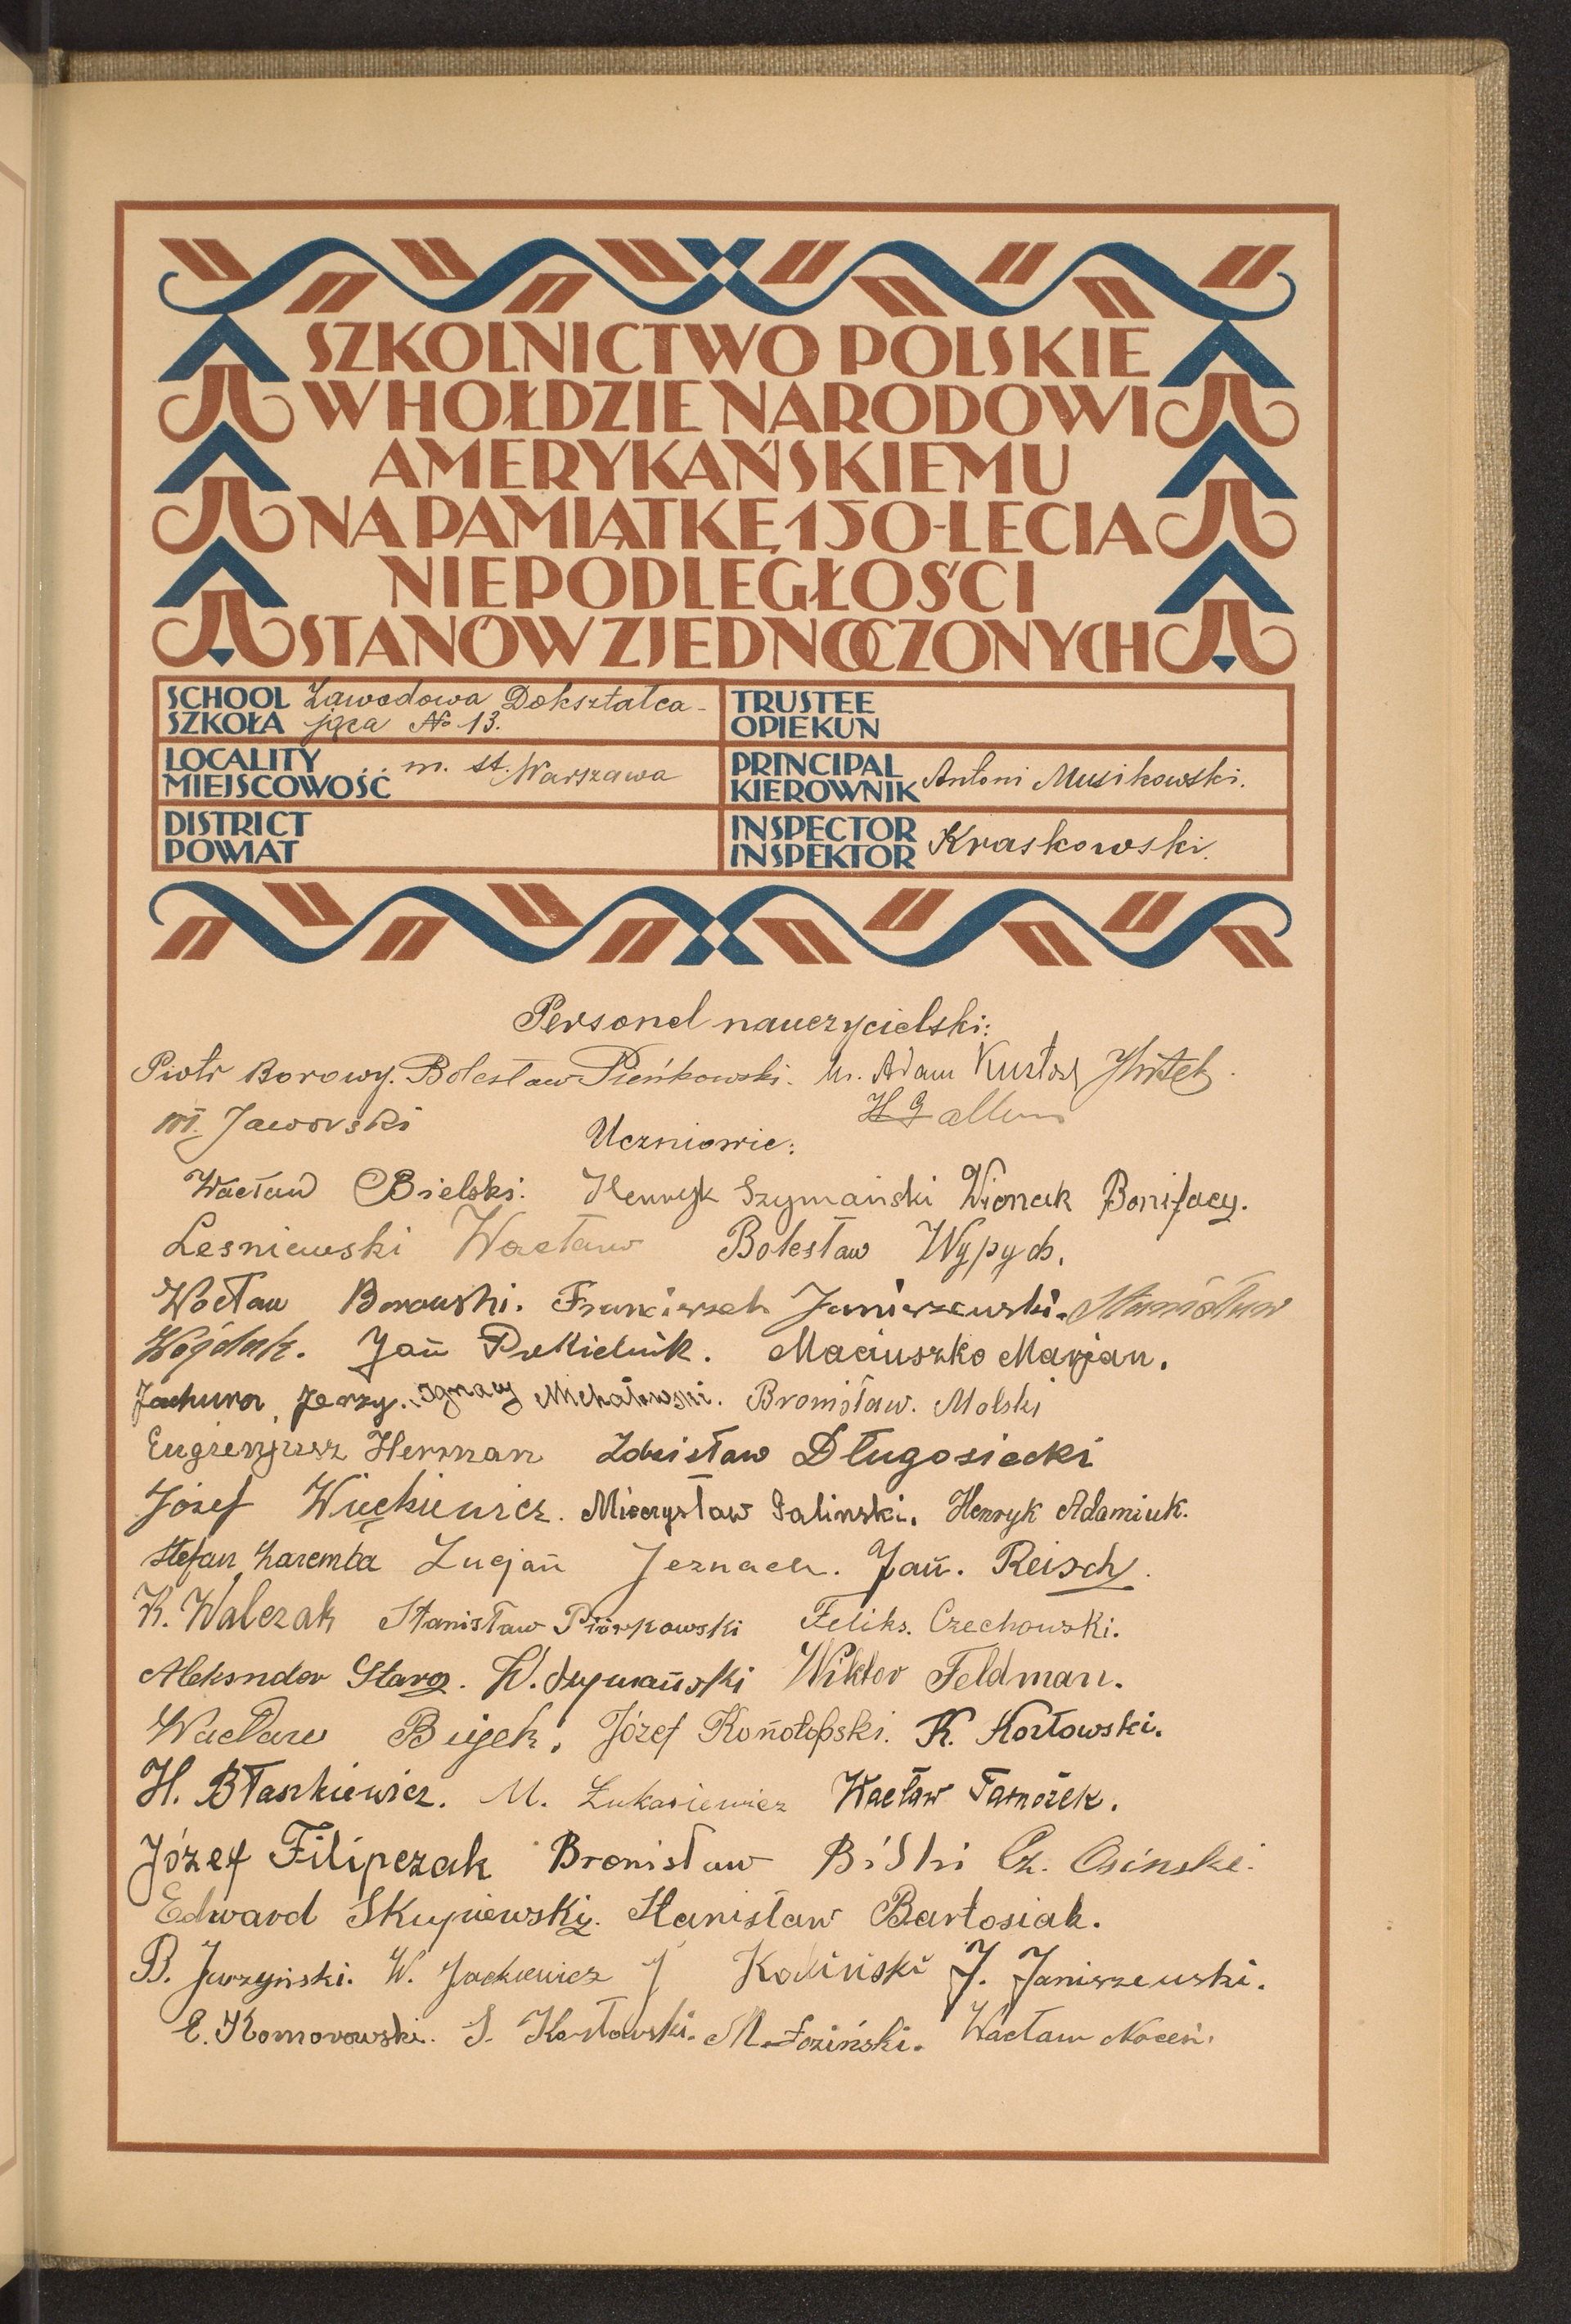 SZKOLNICTWO POLSKIE
W HOŁDZIE NARODOWI
AMERYKAŃSKIEMU
NA PAMIĄTKĘ 150-LECIA
NIEPODLEGŁOŚCI
STANÓW ZJEDNOCZONYCH
SCHOOL Zawodowa Dokształca-
SZKOŁA jąca № 13.
TRUSTEE
OPIEKUN
LOCALITY
MIEJSCOWOŚĆ m. st. Warszawa
PRINCIPAL
KIEROWNIK Antoni Musikowski.
DISTRICT
POWIAT
INSPECTOR
INSPEKTOR Kraskowski.
Personel nauczycielski:
Piotr Borowy. Bolesław Pieńkowski. Adam Kustosz
Jaworski
Uczniowie:
Wacław Bielski. Henryk Szymański Wionczk Bonifacy.
Lesniewski Wacław Bolesław Wypych.
Wacław Borowski. Franciszek Janiszewski. Stanisław
Wojdak. Jan Piekielnik. Maciuszko Marjan.
Jachura, Jerzy. Ignacy Michałowski. Bronisław. Molski
Eugienjusz Herman Zdzisław Długosiecki
Józef Więckiewicz. Mieczysław Salinski. Henryk Adamiuk.
Stefan Zaremba Lucjan Jeznach. Jan. Reisch.
K. Walczak Stanisław Piórkowski Feliks. Czechowski.
Aleksnder Staroz. W. Szymański Wiktor Feldman.
Wacław Bujek. Józef Konotopski. K. Kozłowski.
H. Błaszkiewicz. M. Łukasiewicz Wacław Tamożek.
Józef Filipczak Bronisław Bilski Cz. Osinski.
Edward Skupiewski. Stanisław Bartosiak.
B. Jurzyński. W. Jackiewicz J Koziński J. Janiszewski.
E. Komorowski. S. Kozłowski. M. Łoziński. Wacław Noceń.